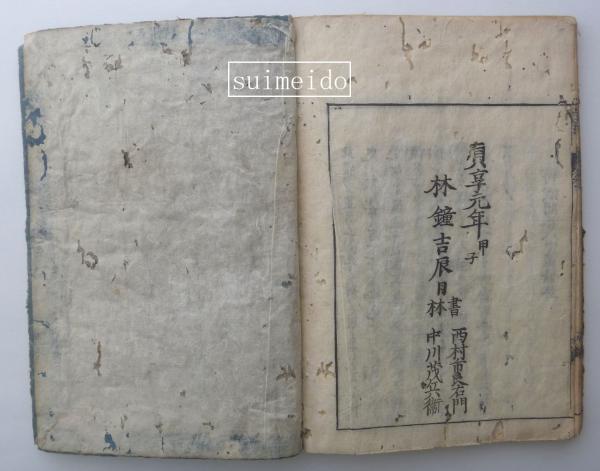 suimeido
貞享元年甲子
林鐘吉辰日
書林
西村重右門
中川茂兵衛